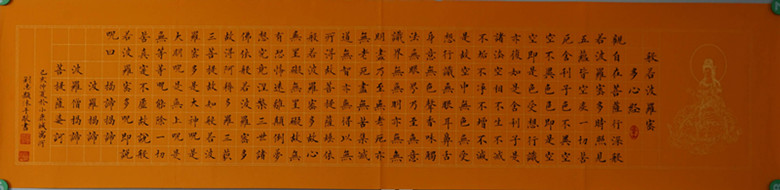 般若波羅蜜
多心經
觀自在菩薩行深般
若波羅蜜多時照見
五蘊皆空度一切苦
厄舍利子色不異空
空不異色色即是空
空即是色受想行識
亦復如是舍利子是
諸法空相不生不滅
不垢不淨不增不減
是故空中無色無受
想行識無眼耳鼻舌
身意無色聲香味觸
法無眼界乃至無意
識界無無明亦無無
明盡乃至無老死亦
無老死盡無苦集滅
道無智亦無得以無
所得故菩提薩埵依
般若波羅蜜多故心
無罣礙無罣礙故無
有恐怖遠離顛倒夢
想究竟涅槃三世諸
佛依般若波羅蜜多
故得阿耨多羅三藐
三菩提故知般若波
羅蜜多是大神呪是
大明呪是無上呪是
無等等呪能除一切
苦真實不虛故說般
若波羅蜜多呪即說
呪曰
揭諦揭諦
波羅揭諦
波羅僧揭諦
菩提薩婆訶
沐手敬書